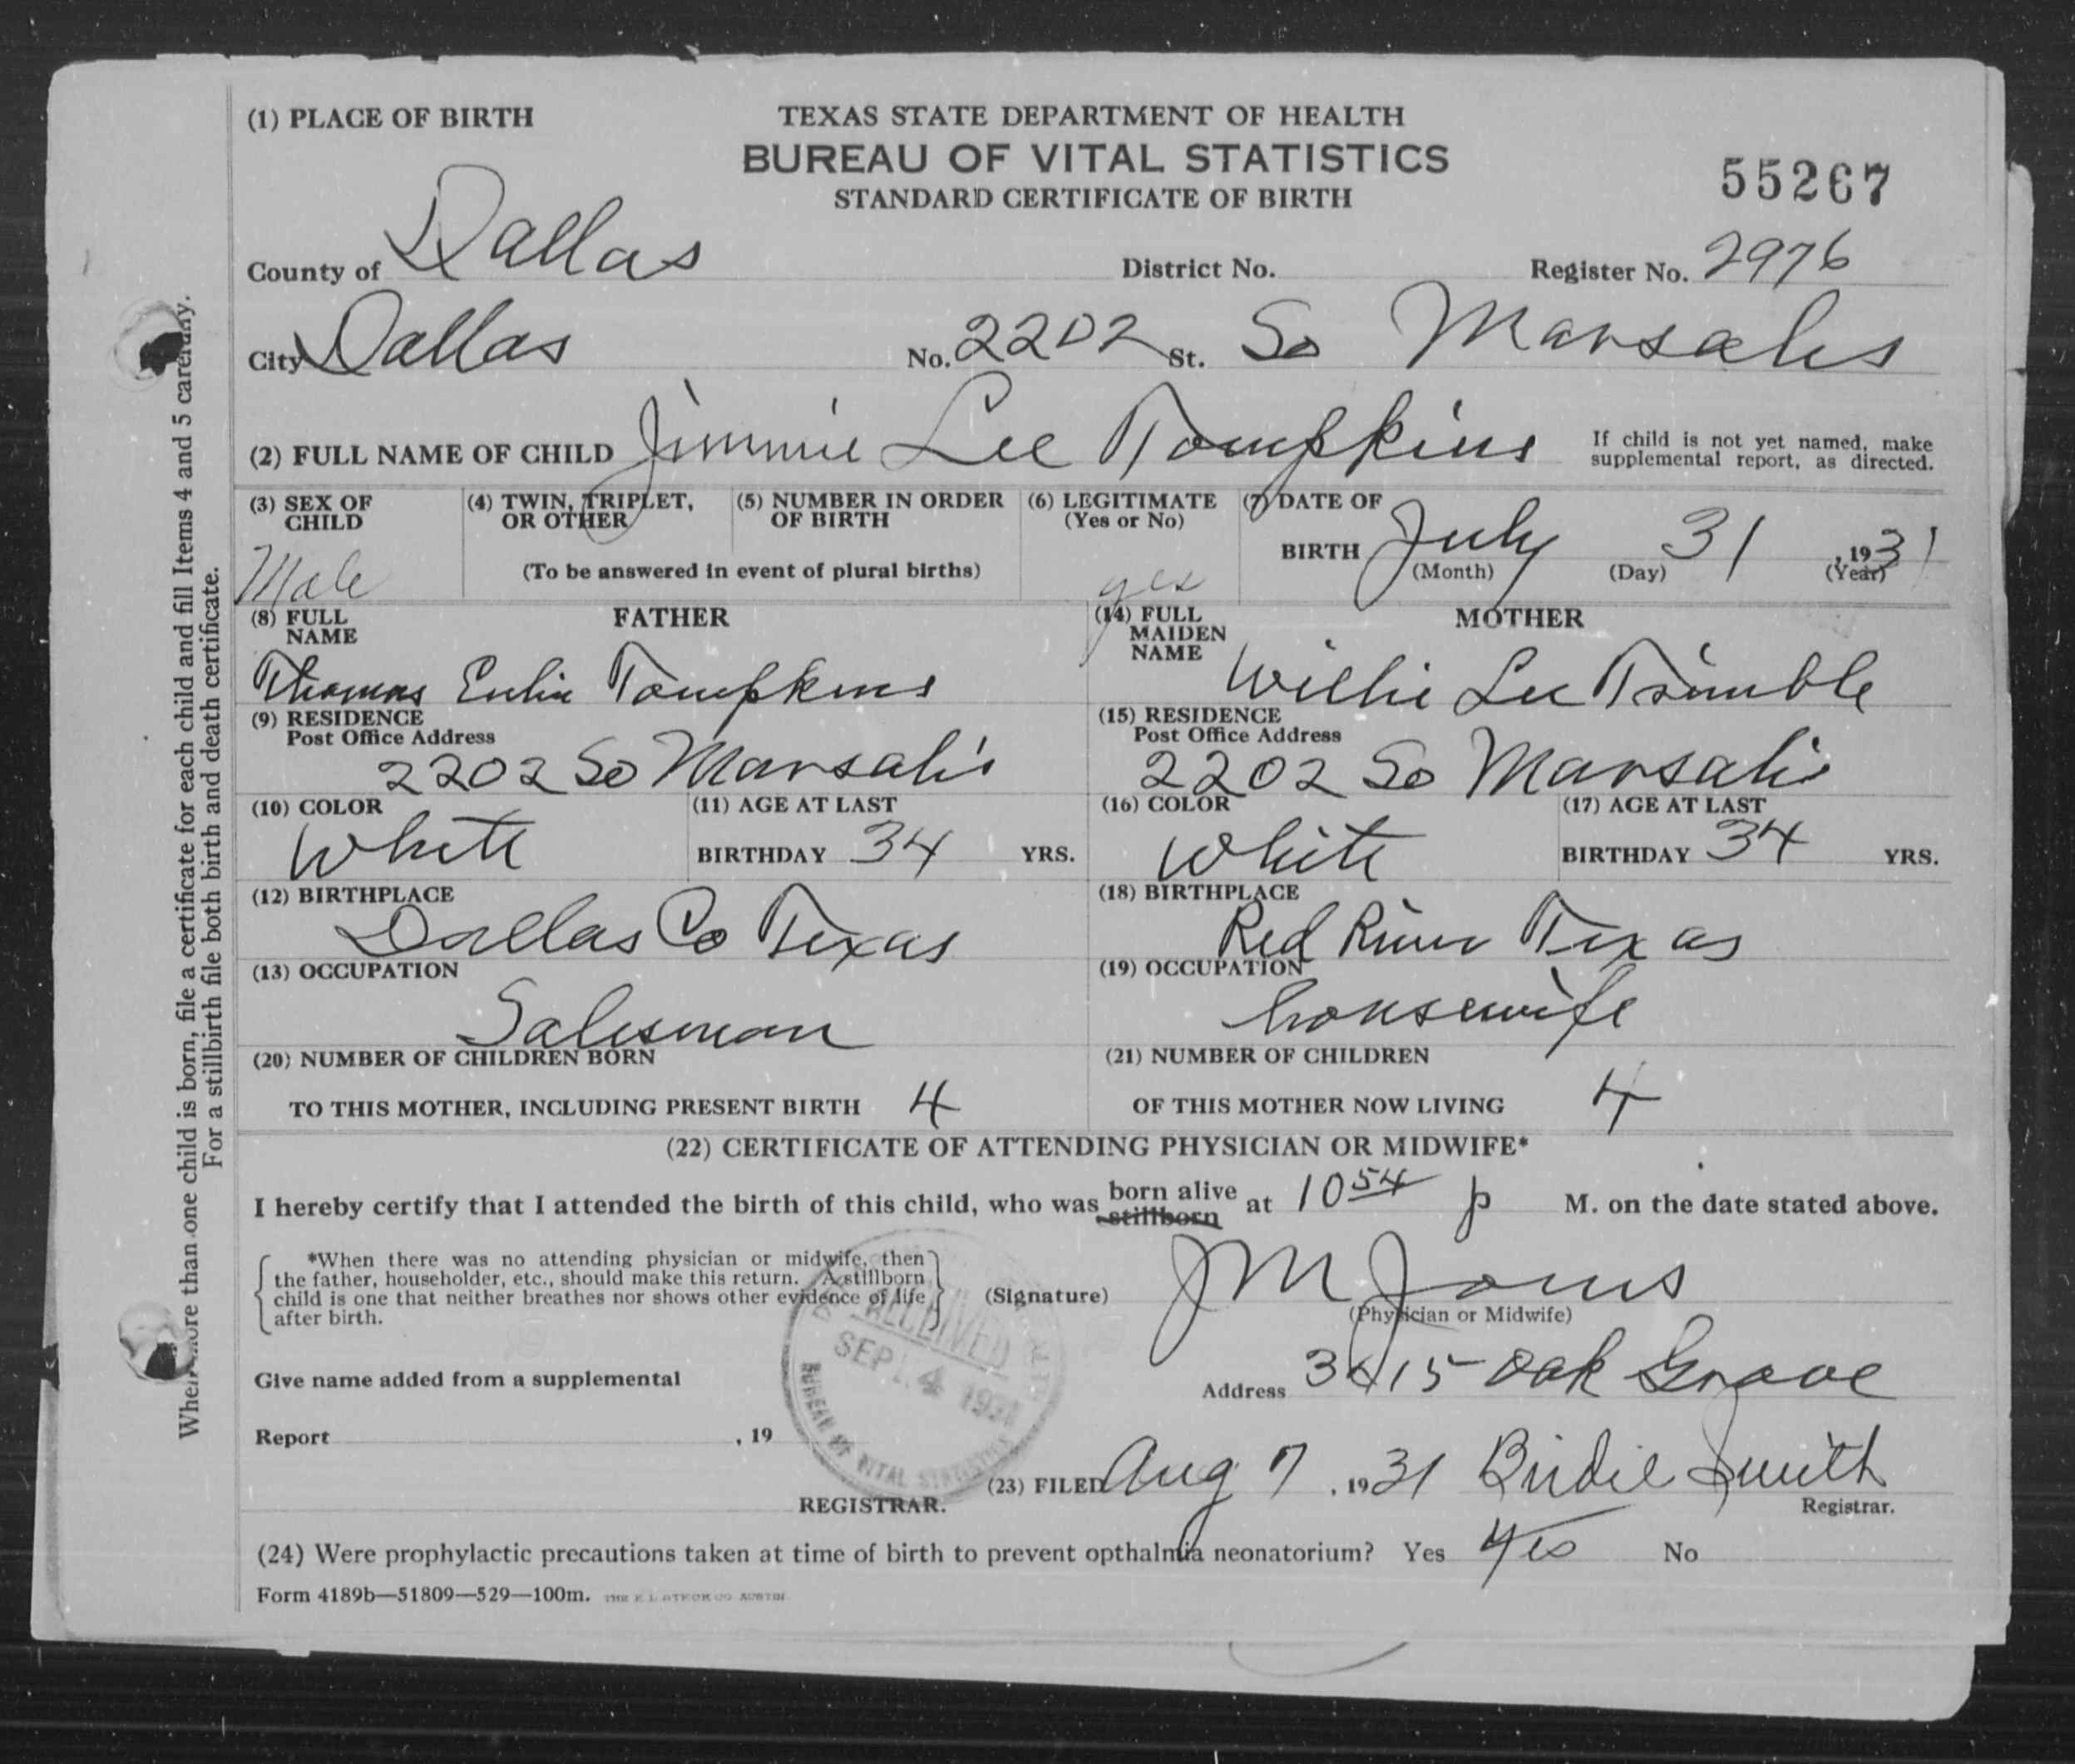 (1) PLACE OF BIRTH
TEXAS STATE DEPARTMENT OF HEALTH
BUREAU OF VITAL STATISTICS
STANDARD CERTIFICATE OF BIRTH
55267
County of Dallas District No. Register No. 2976
City Dallas No. 2202 St. So Marsalis
(2) FULL NAME OF CHILD Jimmie Lee Tompkins
If child is not yet named, make
supplemental report, as directed.
(3) SEX OF CHILD Male
(4) TWIN, TRIPLET, OR OTHER
(5) NUMBER IN ORDER OF BIRTH
(To be answered in event of plural births)
(6) LEGITIMATE (Yes or No) yes
(7) DATE OF BIRTH July 31, 1931
(Month) (Day) (Year)
FATHER
(8) FULL NAME
Thomas Tompkins
(9) RESIDENCE
Post Office Address
2202 So Marsalis
(10) COLOR White
(11) AGE AT LAST BIRTHDAY 34 YRS.
(12) BIRTHPLACE
Dallas Co Texas
(13) OCCUPATION
Salesman
MOTHER
(14) FULL MAIDEN NAME
Willie Lee Trimble
(15) RESIDENCE
Post Office Address
2202 So Marsalis
(16) COLOR White
(17) AGE AT LAST BIRTHDAY 34 YRS.
(18) BIRTHPLACE
Red River Texas
(19) OCCUPATION
housewife
(20) NUMBER OF CHILDREN BORN
TO THIS MOTHER, INCLUDING PRESENT BIRTH 4
(21) NUMBER OF CHILDREN
OF THIS MOTHER NOW LIVING 4
(22) CERTIFICATE OF ATTENDING PHYSICIAN OR MIDWIFE*
I hereby certify that I attended the birth of this child, who was born alive stillborn at 10 54 p M. on the date stated above.
*When there was no attending physician or midwife, then
the father, householder, etc., should make this return. A stillborn
child is one that neither breathes nor shows other evidence of life
after birth.
(Signature) J M Jones
(Physician or Midwife)
Address Oak Grove
Give name added from a supplemental
Report , 19
REGISTRAR.
RECEIVED
SEP 4 1931
BUREAU OF VITAL STATISTICS
(23) FILED Aug 7, 1931 Birdie Smith
Registrar.
(24) Were prophylactic precautions taken at time of birth to prevent opthalmia neonatorium? Yes Yes No
Form 4189b—51809—529—100m.
When more than one child is born, file a certificate for each child and fill Items 4 and 5 carefully.
For a stillbirth file both birth and death certificate.